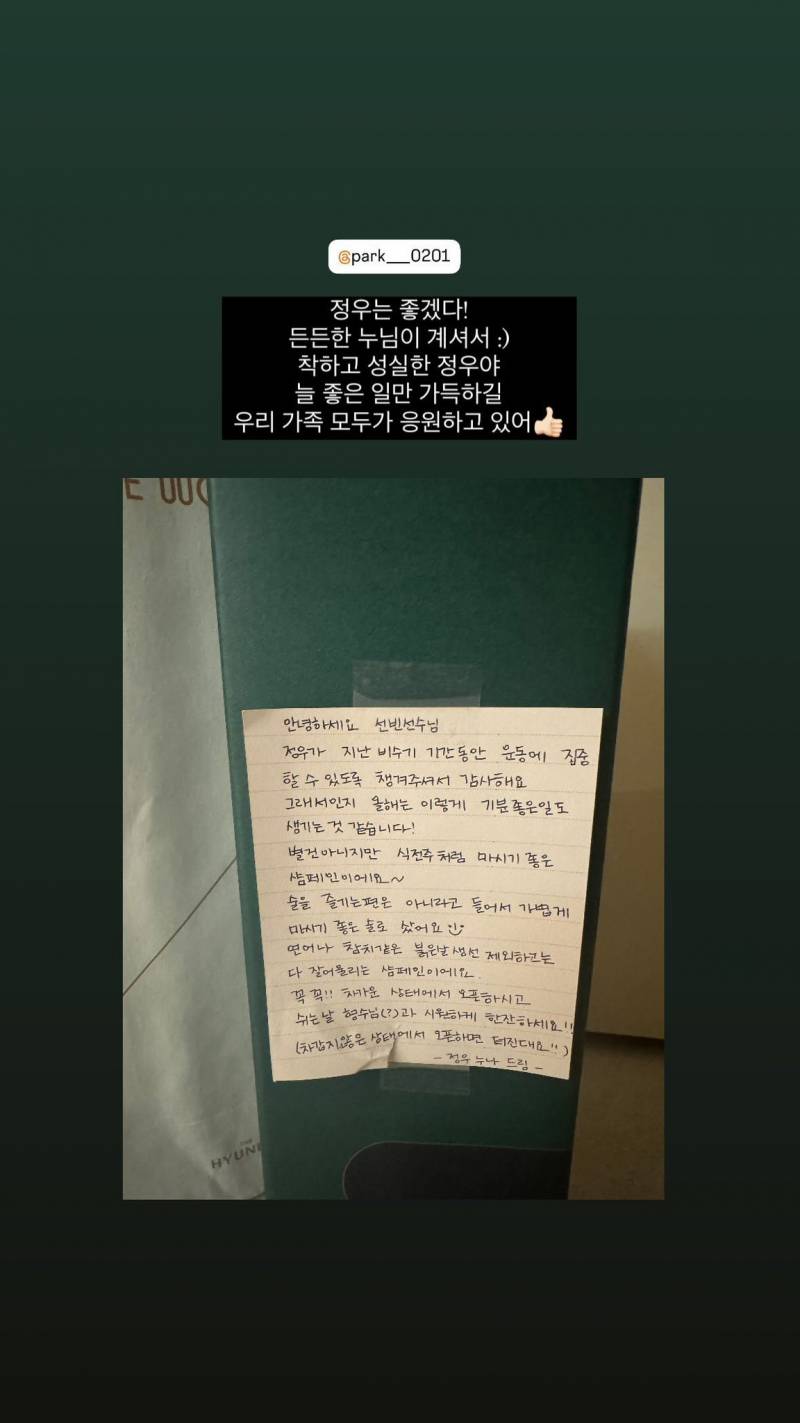 @park__0201
정우는 좋겠다!
든든한 누님이 계셔서 :)
착하고 성실한 정우야
늘 좋은 일만 가득하길
우리 가족 모두가 응원하고 있어👍🏻
안녕하세요 선빈선수님
정우가 지난 비수기 기간동안 운동에 집중
할 수 있도록 챙겨주셔서 감사해요
그래서인지 올해는 이렇게 기분좋은일도
생기는것 같습니다!
별건아니지만 식전주처럼 마시기 좋은
샴페인이에요~
술을 즐기는편은 아니라고 들어서 가볍게
마시기 좋은 술로 샀어요
연어나 참치같은 붉은살생선 제외하고는
다 잘어울리는 샴페인이에요.
꼭 꼭!! 차가운 상태에서 오픈하시고
쉬는날 형수님(?)과 시원하게 한잔하세요!!
(차갑지않은 상태에서 오픈하면 터진대요!!)
- 정우 누나 드림 -
THE
HYUN